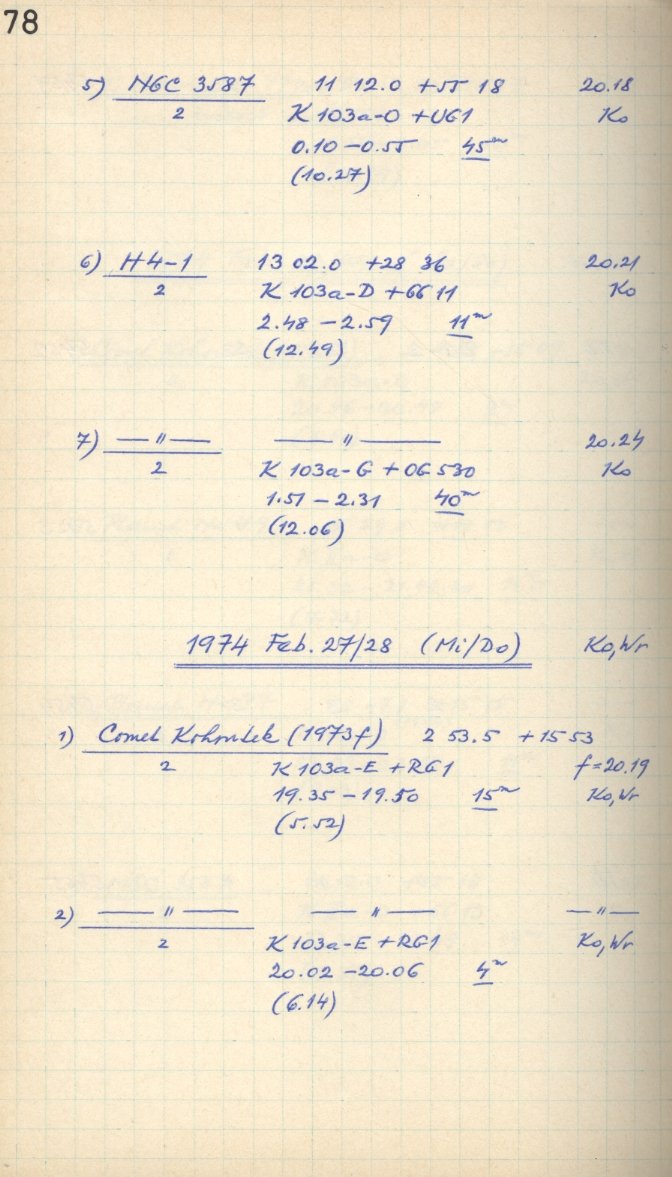 78
5) NGC 3587 11 12.0 +55 18 20.18
2 K 103a-O +UG1 Ko
0.10 – 0.55 45m
(10.27)
6) H4-1 13 02.0 +28 36 20.21
2 K 103a-D +GG 11 Ko
2.48 – 2.59 11m
(12.49)
7) — " — — " — 20.24
2 K 103a-G + OG 530 Ko
1.51 – 2.31 40m
(12.06)
1974 Feb. 27/28 (Mi/Do) Ko, Wr
1) Comet Kohoutek (1973f) 2 53.5 +15 53
2 K 103a-E + RG1 f=20.19
19.35 – 19.50 15m Ko, Wr
(5.52)
2) — " — — " — — " —
2 K 103a-E + RG1 Ko, Wr
20.02 – 20.06 4m
(6.14)